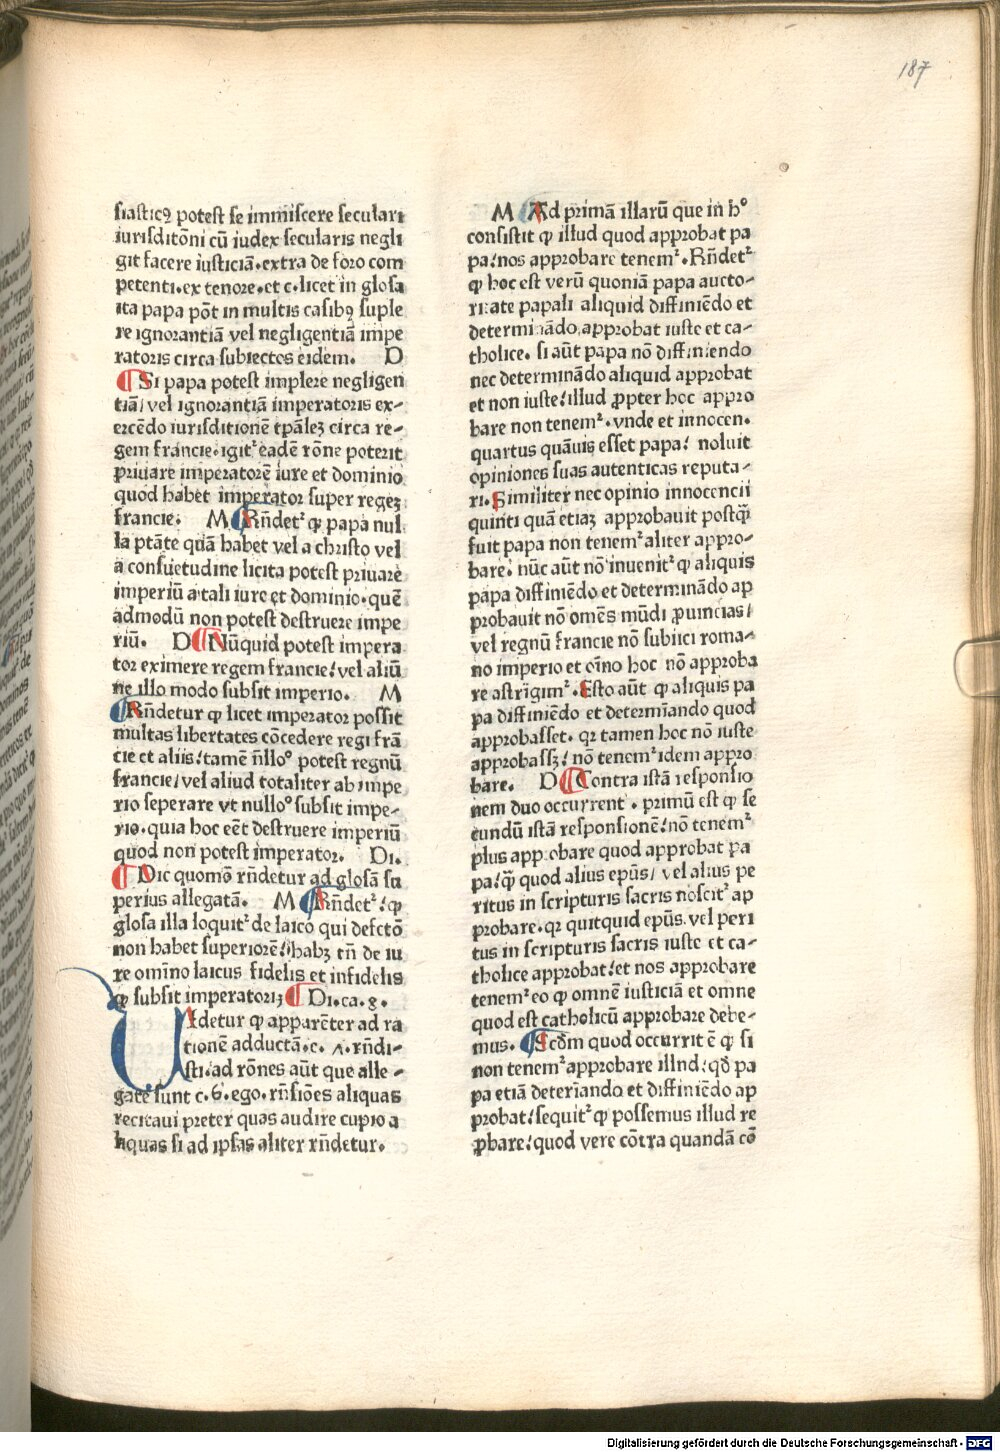 187
siasticꝯ potest se immiscere seculari
iurisditōni cū iudex secularis negli
git facere iusticiā.extra de foro com
petenti.ex tenore.et c.licet in glosa
ita papa pōt in multis casibꝫ suple
re ignorantiā vel negligentiā impe
ratoris circa subiectos eidem. D
¶ Si papa potest implere negligen
tiā/vel ignorantiā imperatoris ex-
ercēdo iurisditionē tpāleꝫ circa re-
gem francie.igitᷣ eadē rōne poterit
priuare imperatorē iure et dominio
quod habet imperator super regeꝫ
francie. M ¶ Rn̄detᷣ ꝙ papa nul
la ptāte quā habet vel a christo vel
a consuetudine licita potest priuare
imperiū a tali iure et dominio.quē
admodū non potest destruere impe
riū. D ¶ Nūquid potest impera
tor eximere regem francie/vel aliū
ne illo modo subsit imperio. M
¶ Rn̄detur ꝙ licet imperator possit
multas libertates cōcedere regi frā
cie et aliis/tamē n̄llo° potest regnū
francie/vel aliud totaliter ab impe
rio seperare vt nullo° subsit impe-
rio.quia hoc eēt destruere imperiū
quod non potest imperator. Di.
¶ Dic quomō rn̄detur ad glosā su
perius allegatā. M ¶ Rn̄detᷣ/ꝙ
glosa illa loquitᷣ de laico qui defctō
non habet superiorē/habꝫ tn̄ de iu
re omīno laicus fidelis et infidelis
ꝙ subsit imperatoriꝫ ¶ Di.ca.8.
Uidetur ꝙ apparēter ad ra
tionē adductā.c. 7.rn̄di-
sti.ad rōnes aūt que alle-
gate sunt c.6.ego.rn̄siōes aliquas
recitaui preter quas audire cupio a
liquas si ad ipsas aliter rn̄detur.
M ¶ Ad primā illarū que in h°
consistit ꝙ illud quod approbat pa
pa/nos approbare tenemᷣ.Rn̄detᷣ
ꝙ hoc est verū quoniā papa aucto-
ritate papali aliquid diffiniēdo et
determinādo approbat iuste et ca-
tholice. si aūt papa nō diffiniendo
nec determinādo aliquid approbat
et non iuste/illud ꝓpter hoc appro
bare non tenemᷣ.vnde et innocen.
quartus quāuis esset papa/ noluit
opiniones suas autenticas reputa-
ri.Similiter nec opinio innocencii
quinti quā etiaꝫ approbauit postꝙ̄
fuit papa non tenemᷣ aliter appro-
bare/ nūc aūt nō inuenitᷣ ꝙ aliquis
papa diffiniēdo et determinādo ap
probauit nō omēs mūdi ꝓuincias/
vel regnū francie nō subiici roma-
no imperio et oīno hoc nō approba
re astrīgimᷣ.Esto aūt ꝙ aliquis pa
pa diffiniēdo et determīando quod
approbasset. qꝛ tamen hoc nō iuste
approbassꝫ/ nō tenemᷣ idem appro
bare. D ¶ Contra istā responsio
nem duo occurrent. primū est ꝙ se
cundū istā responsionē/nō tenemᷣ
plus approbare quod approbat pa
pa/ꝙ̄ quod alius epūs/ vel alius pe
ritus in scripturis sacris noscitᷣ ap
probare.qꝛ quitquid epūs vel peri
tus in scripturis sacris iuste et ca-
tholice approbat/et nos approbare
tenemᷣ eo ꝙ omnē iusticiā et omne
quod est catholicū approbare debe-
mus. ¶ Scd̄m quod occurrit ē ꝙ si
non tenemᷣ approbare illnd/qd̄ pa
pa etiā deterīando et diffiniēdo ap
probat/sequitᷣ ꝙ possemus illud re
ꝓbare/quod vere cōtra quandā cō
Digitalisierung gefördert durch die Deutsche Forschungsgemeinschaft - DFG